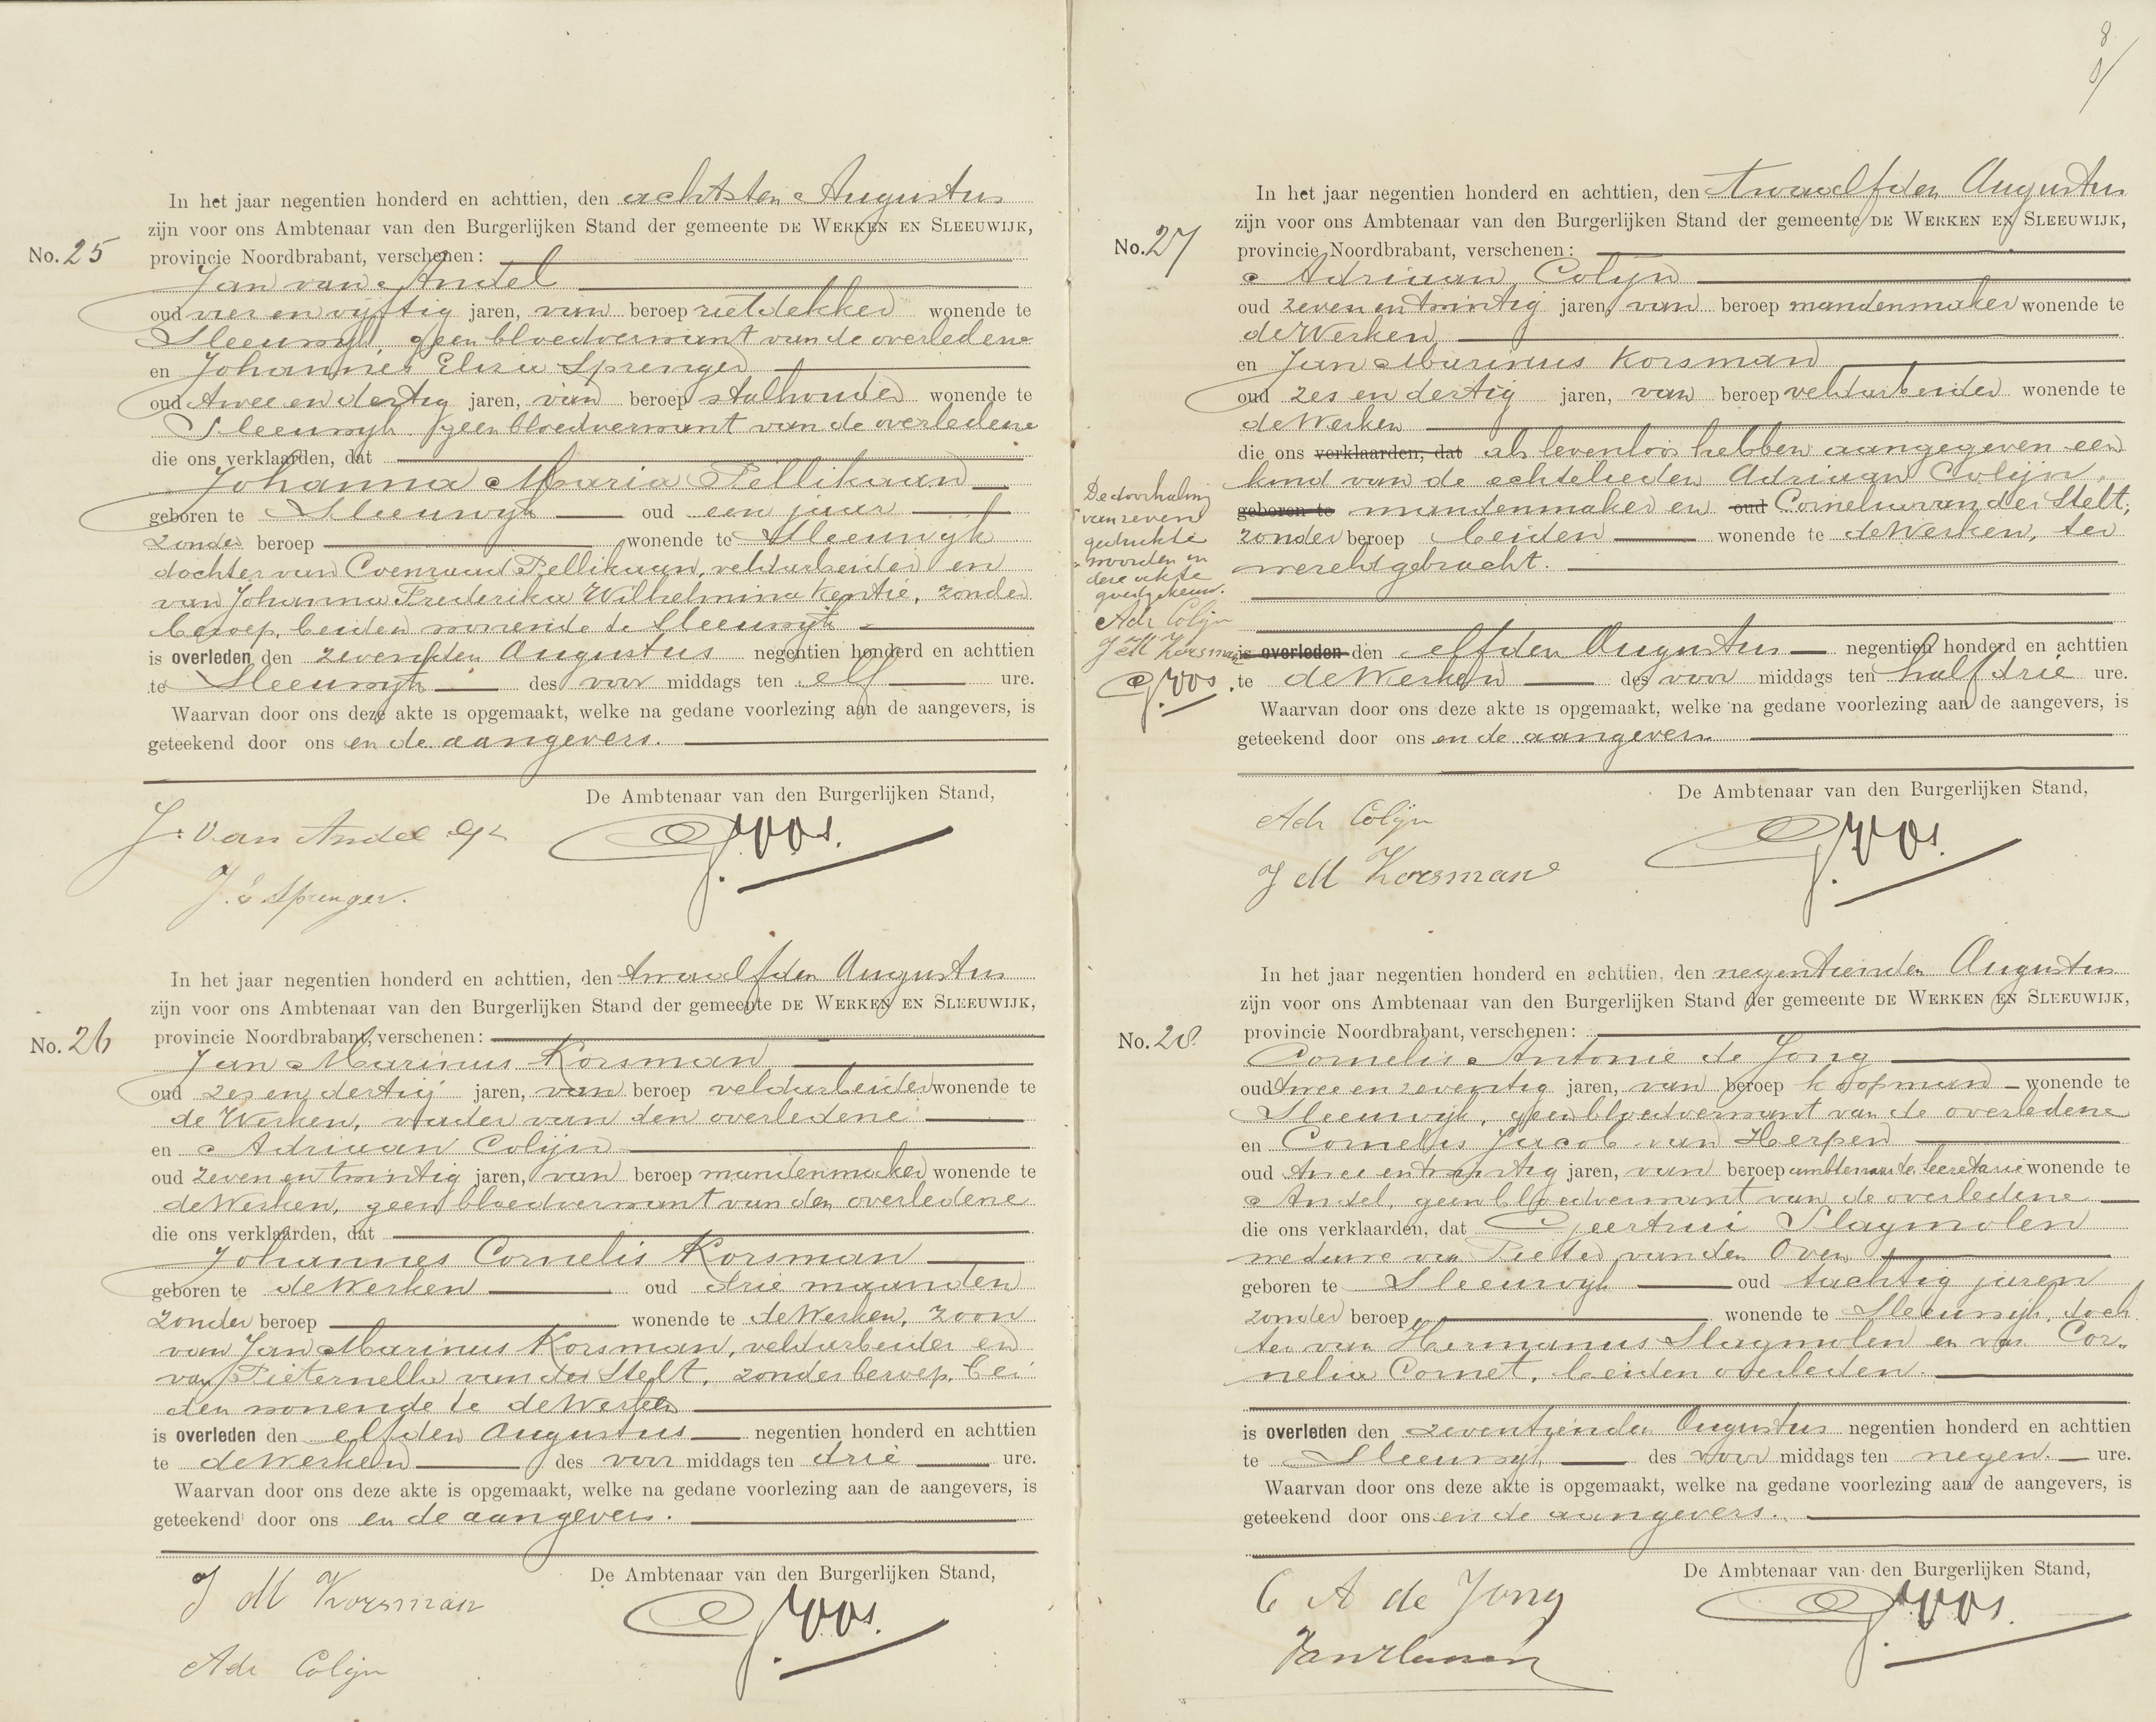 In het jaar negentien honderd en achttien, den achtsten Augustus
zijn voor ons Ambtenaar van den Burgerlijken Stand der gemeente DE WERKEN EN SLEEUWIJK,
No. 25
provincie Noordbrabant, verschenen:
Jan van Andel
oud vier en vijftig jaren, van beroep rietdekker wonende te
Sleeuwijk, geen bloedverwant van de overledene
en Johannes Eliza Sprenger
oud twee en dertig jaren, van beroep stalhouder wonende te
Sleeuwijk geen bloedverwant van de overledene
die ons verklaarden, dat
Johanna Maria Pellikaan
geboren te Sleeuwijk oud een jaar
zonder beroep wonende te Sleeuwijk
dochter van Coenraad Pellikaan, veldarbeider en
van Johanna Frederika Wilhelmina Kentie, zonder
beroep, beiden wonende te Sleeuwijk
is overleden den zevenden Augustus negentien honderd en achttien
te Sleeuwijk des voor middags ten elf ure.
Waarvan door ons deze akte is opgemaakt, welke na gedane voorlezing aan de aangevers, is
geteekend door ons en de aangevers.
De Ambtenaar van den Burgerlijken Stand,
J. van Andel
J. E Sprenger.
G. Vos.
In het jaar negentien honderd en achttien, den twaalfden Augustus
zijn voor ons Ambtenaar van den Burgerlijken Stand der gemeente DE WERKEN EN SLEEUWIJK,
No. 26
provincie Noordbrabant, verschenen:
Jan Marinus Korsman
oud zes en dertig jaren, van beroep veldarbeider wonende te
de Werken, vader van den overledene
en Adriaan Colijn
oud zeven en twintig jaren, van beroep mandenmaker wonende te
de Werken, geen bloedverwant van den overledene
die ons verklaarden, dat
Johannes Cornelis Korsman
geboren te de Werken oud drie maanden
zonder beroep wonende te de Werken, zoon
van Jan Marinus Korsman, veldarbeider en
van Pieternella van der Stelt, zonder beroep, bei
den wonende te de Werken
is overleden den elfden Augustus negentien honderd en achttien
te de Werken des voor middags ten drie ure.
Waarvan door ons deze akte is opgemaakt, welke na gedane voorlezing aan de aangevers, is
geteekend door ons en de aangevers.
De Ambtenaar van den Burgerlijken Stand,
J M Korsman
G. Vos.
Adr Colijn
8
In het jaar negentien honderd en achttien, den twaalfden Augustus
zijn voor ons Ambtenaar van den Burgerlijken Stand der gemeente DE WERKEN EN SLEEUWIJK,
No. 27
provincie Noordbrabant, verschenen:
Adriaan Colijn
oud zeven en twintig jaren, van beroep mandenmaker wonende te
de Werken
en Jan Marinus Korsman
oud zes en dertig jaren, van beroep veldarbeider wonende te
de Werken
die ons verklaarden, dat als levenloos hebben aangegeven een
kind van de echtelieden Adriaan Colijn,
geboren te mandenmaker en oud Cornelia van der Stelt,
zonder beroep beiden wonende te de Werken, ter
wereld gebracht.
is overleden den elfden Augustus negentien honderd en achttien
te de Werken des voor middags ten half drie ure.
Waarvan door ons deze akte is opgemaakt, welke na gedane voorlezing aan de aangevers, is
geteekend door ons en de aangevers.
De doorhaling
van zeven
gedrukte
woorden in
deze akte
goedgekeurd.
Adr Colijn
J M Korsman
G. Vos.
De Ambtenaar van den Burgerlijken Stand,
Adr Colijn
J M Korsman
G. Vos.
In het jaar negentien honderd en achttien, den negentienden Augustus
zijn voor ons Ambtenaar van den Burgerlijken Stand der gemeente DE WERKEN EN SLEEUWIJK,
No. 28
provincie Noordbrabant, verschenen:
Cornelis Antonie de Jong
oud twee en zeventig jaren, van beroep koopman wonende te
Sleeuwijk, geen bloedverwant van de overledene
en Cornelis Jacob van Herpen
oud twee en twintig jaren, van beroep ambtenaar te secretarie wonende te
Andel, geen bloedverwant van de overledene
die ons verklaarden, dat Geertrui Slagmolen
weduwe van Pieter van den Oven
geboren te Sleeuwijk oud tachtig jaren
zonder beroep wonende te Sleeuwijk, doch
ter van Hermanus Slagmolen en van Cor„
nelia Cornet, beiden overleden.
is overleden den zeventienden Augustus negentien honderd en achttien
te Sleeuwijk des voor middags ten negen. ure.
Waarvan door ons deze akte is opgemaakt, welke na gedane voorlezing aan de aangevers, is
geteekend door ons en de aangevers.
De Ambtenaar van den Burgerlijken Stand,
C A de Jong
G. Vos.